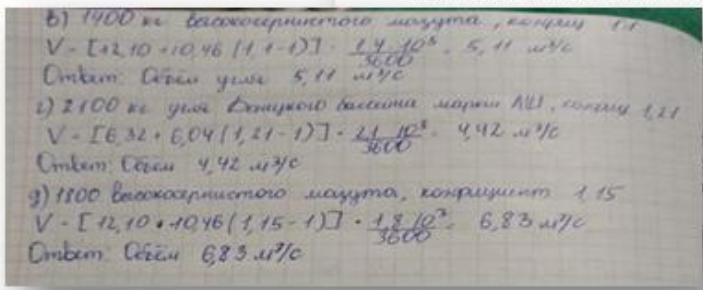 в) 1400 кг высокосернистого мазута, коэффиц 1.1
V = [12,10 + 10,46 (1,1-1)] · 1,4·10³/3600 = 5,11 м³/с
Ответ: Объём угля 5,11 м³/с
г) 2100 кг угля Донецкого бассейна марки АШ, 1,21
V = [6,32 + 6,04 (1,21-1)] · 2,1·10³/3600 = 4,42 м³/с
Ответ: Объём 4,42 м³/с
д) 1800 высокосернистого мазута, коэфициент 1,15
V = [12,10 + 10,46 (1,15-1)] · 1,8·10³/3600 = 6,83 м³/с
Ответ: Объём 6,83 м³/с